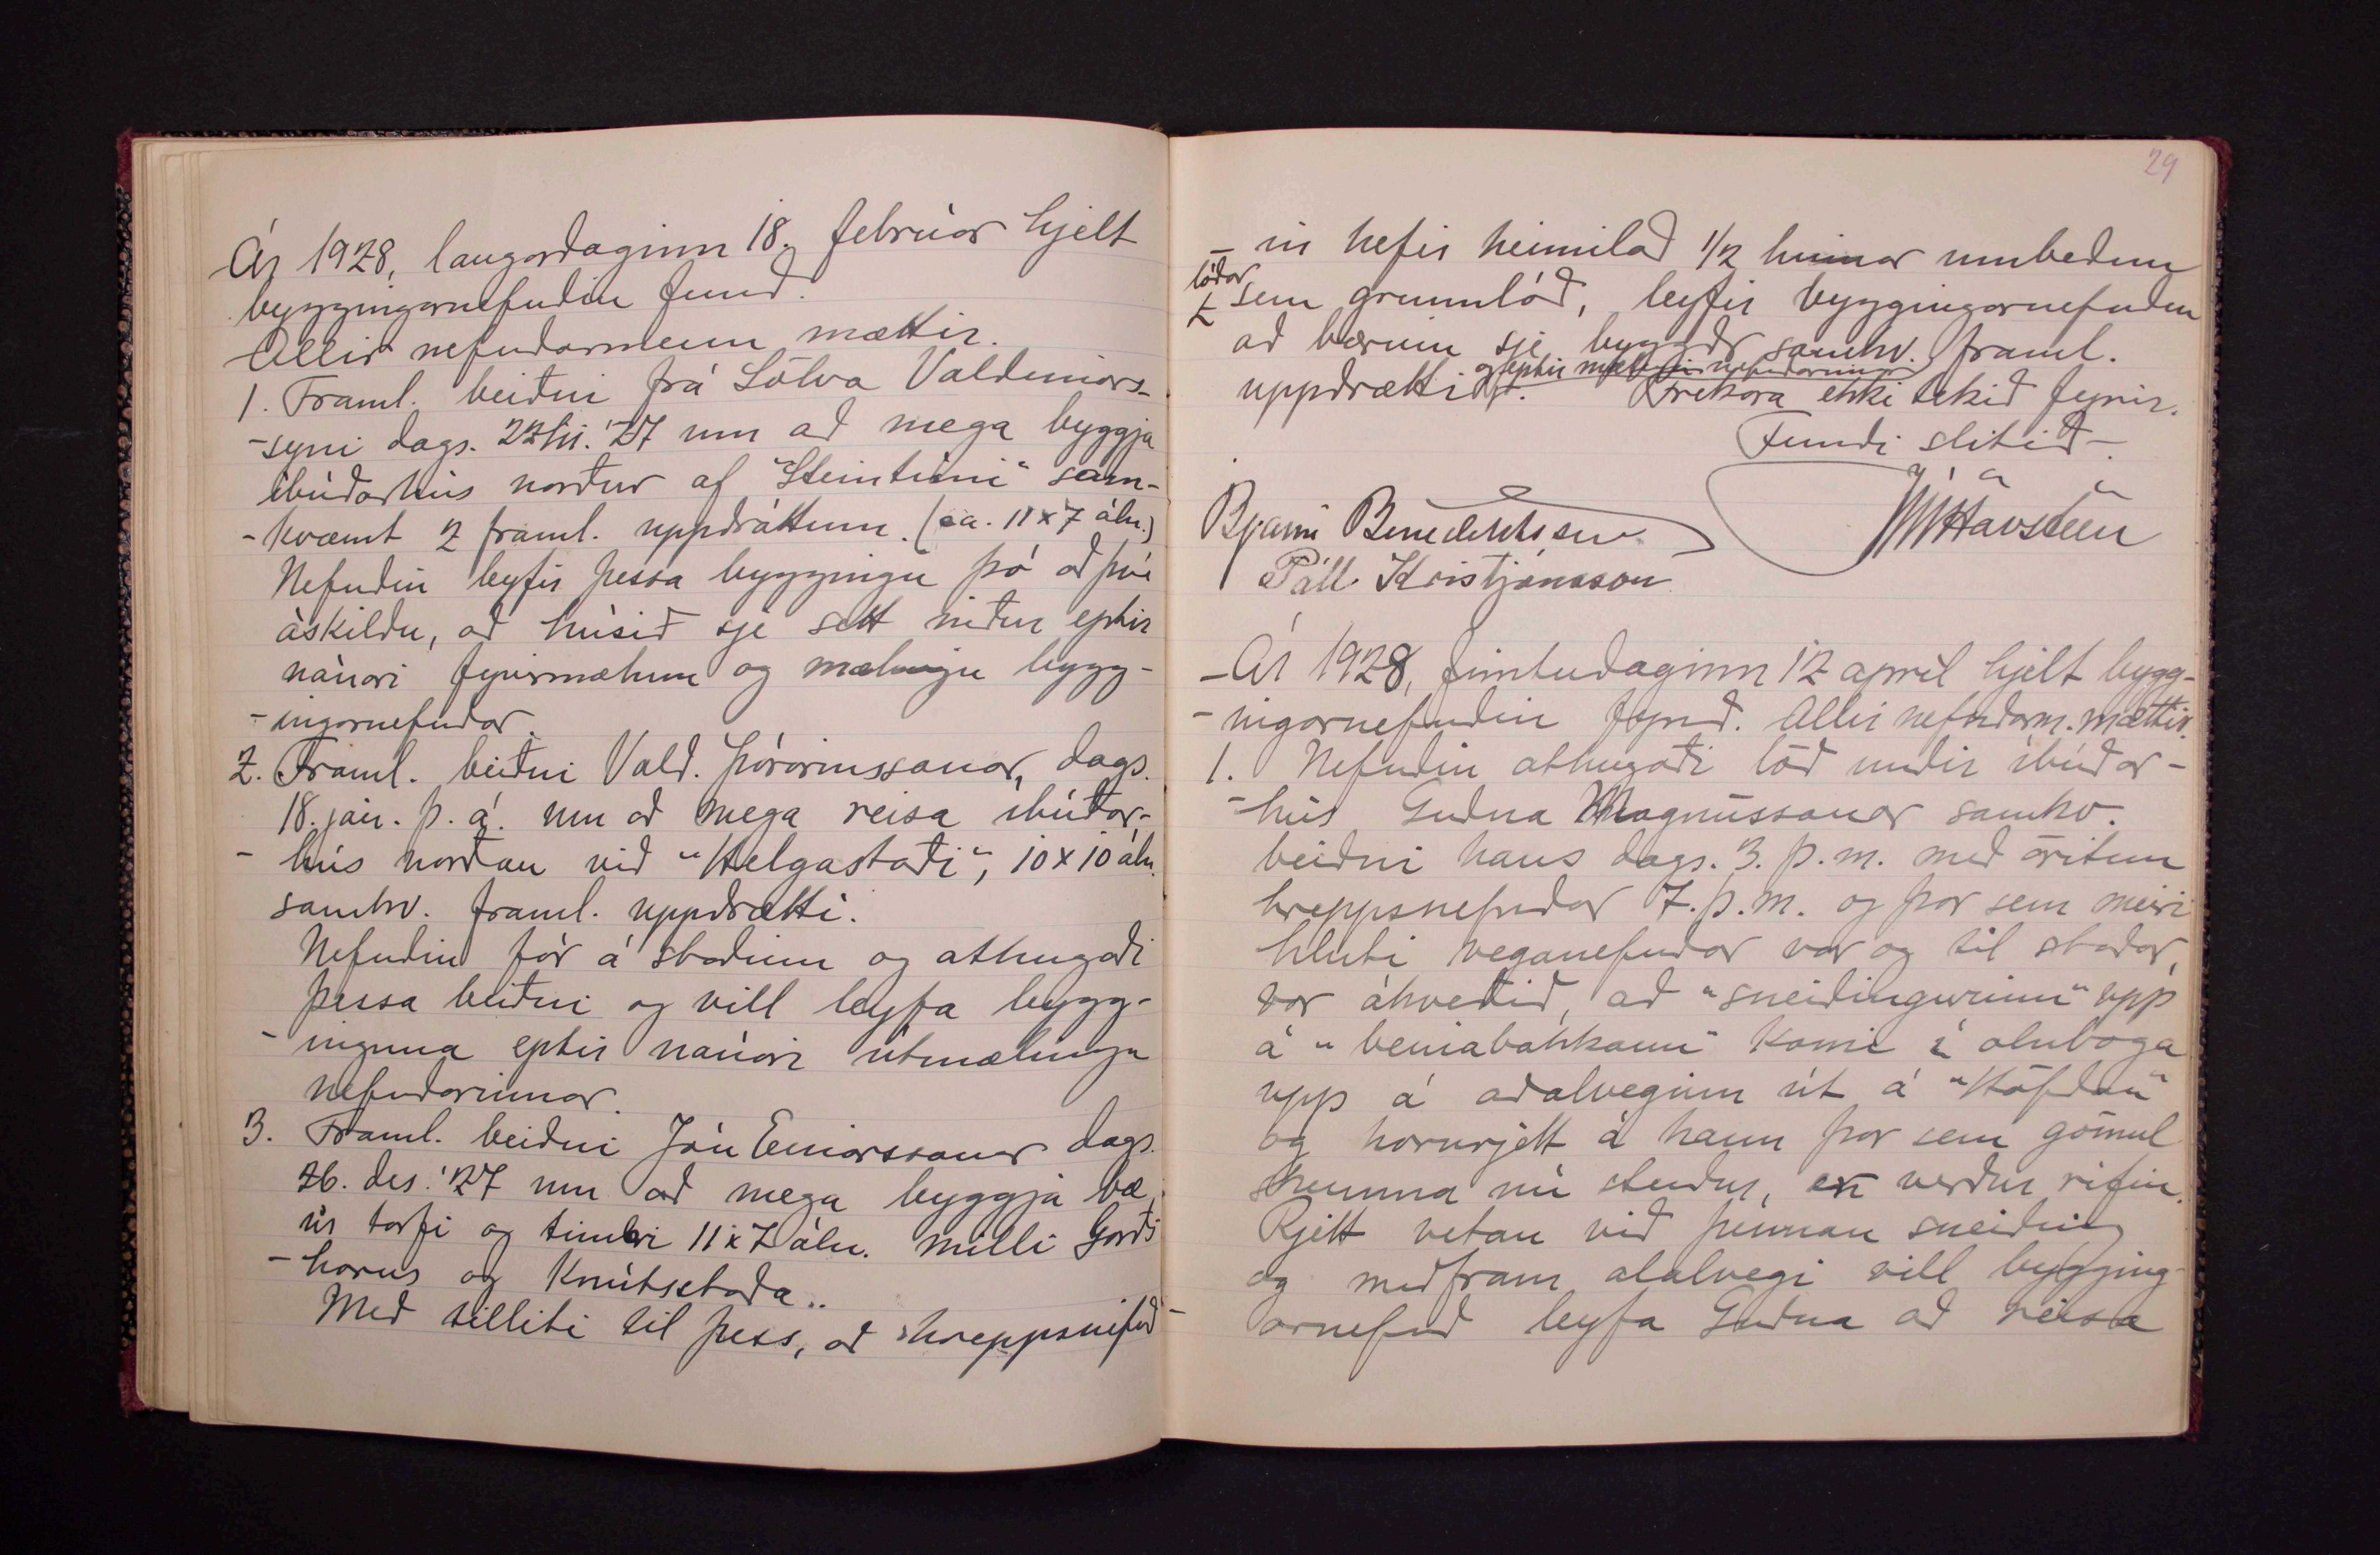 Ár 1928, laugardaginn 18. febrúar hjelt
byggingarnefndin fund.
Allir nefndarmenn mættir.
1. Framl. beiðni frá Sölva Valdemars-
-syni dags. 22/11. '27 um að mega byggja
íbúðarhús norður af "Steintúni" sam-
-kvæmt 2 framl. uppdráttum. (ca. 11 x 7 áln.)
Nefndin leyfir þessa byggingu þó að því
áskildu, að húsið sje sett niður eptir
nánari fyrirmælum og mælingu bygg-
-ingarnefndar.
2. Framl. beiðni Vald. Þórarinssonar, dags.
18. jan. þ. á. um að mega reisa íbúðar-
- hús norðan við "Helgastaði", 10 x 10 áln.
samkv. framl. uppdrætti.
Nefndin fór á staðinn og athugaði
þessa beiðni og vill leyfa bygg-
- inguna eptir nánari útmælingu
nefndarinnar.
3. Framl. beiðni Jón Einarssonar dags.
26. des. '27 um að mega byggja bæ
úr torfi og timbri 11 x 7 áln. milli Garðs
- horns og Knútsstaða..
Með tilliti til þess, að hreppsnefnd-
29
- in hefir heimilað 1/2 hinnar umbeðnu
lóðar
sem grunnlóð, leyfir byggingarnefndin
að bærinn sje byggðr samkv. framl.
og eptir mælingu nefndarinnar
uppdrætti. Frekara ekki tekið fyrir.
Fundi slitið.
J. Havsteen
Bjarni Benediktsson
Páll Kristjánsson
Ár 1928, fimtudaginn 12 apríl hjelt bygg-
- ingarnefndin fund. Allir nefndarm. mættir.
1. Nefndin athugaði lóð undir íbúðar-
- hús Guðna Magnússonar samkv.
beiðni hans dags. 3. þ. m. með áritun
hreppsnefndar 7. þ. m. og þar sem meiri
hluti veganefndar var og til staðar,
var ákveðið, að "sneiðingurinn" upp
á "beinabakkann" komi í olnboga
upp á aðalveginn út á "Höfðann"
og hornrjett á hann þar sem gömul
skemma nú stendur, en verður rifin.
Rjett vestan við þennan sneiðing
og meðfram aðalvegi vill bygging-
arnefnd leyfa Guðna að reisa